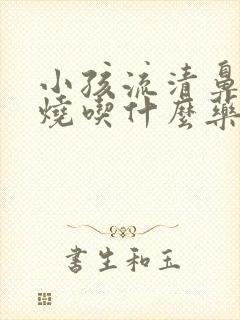 小孩流清鼻
燒喫什麼藥
書生和玉